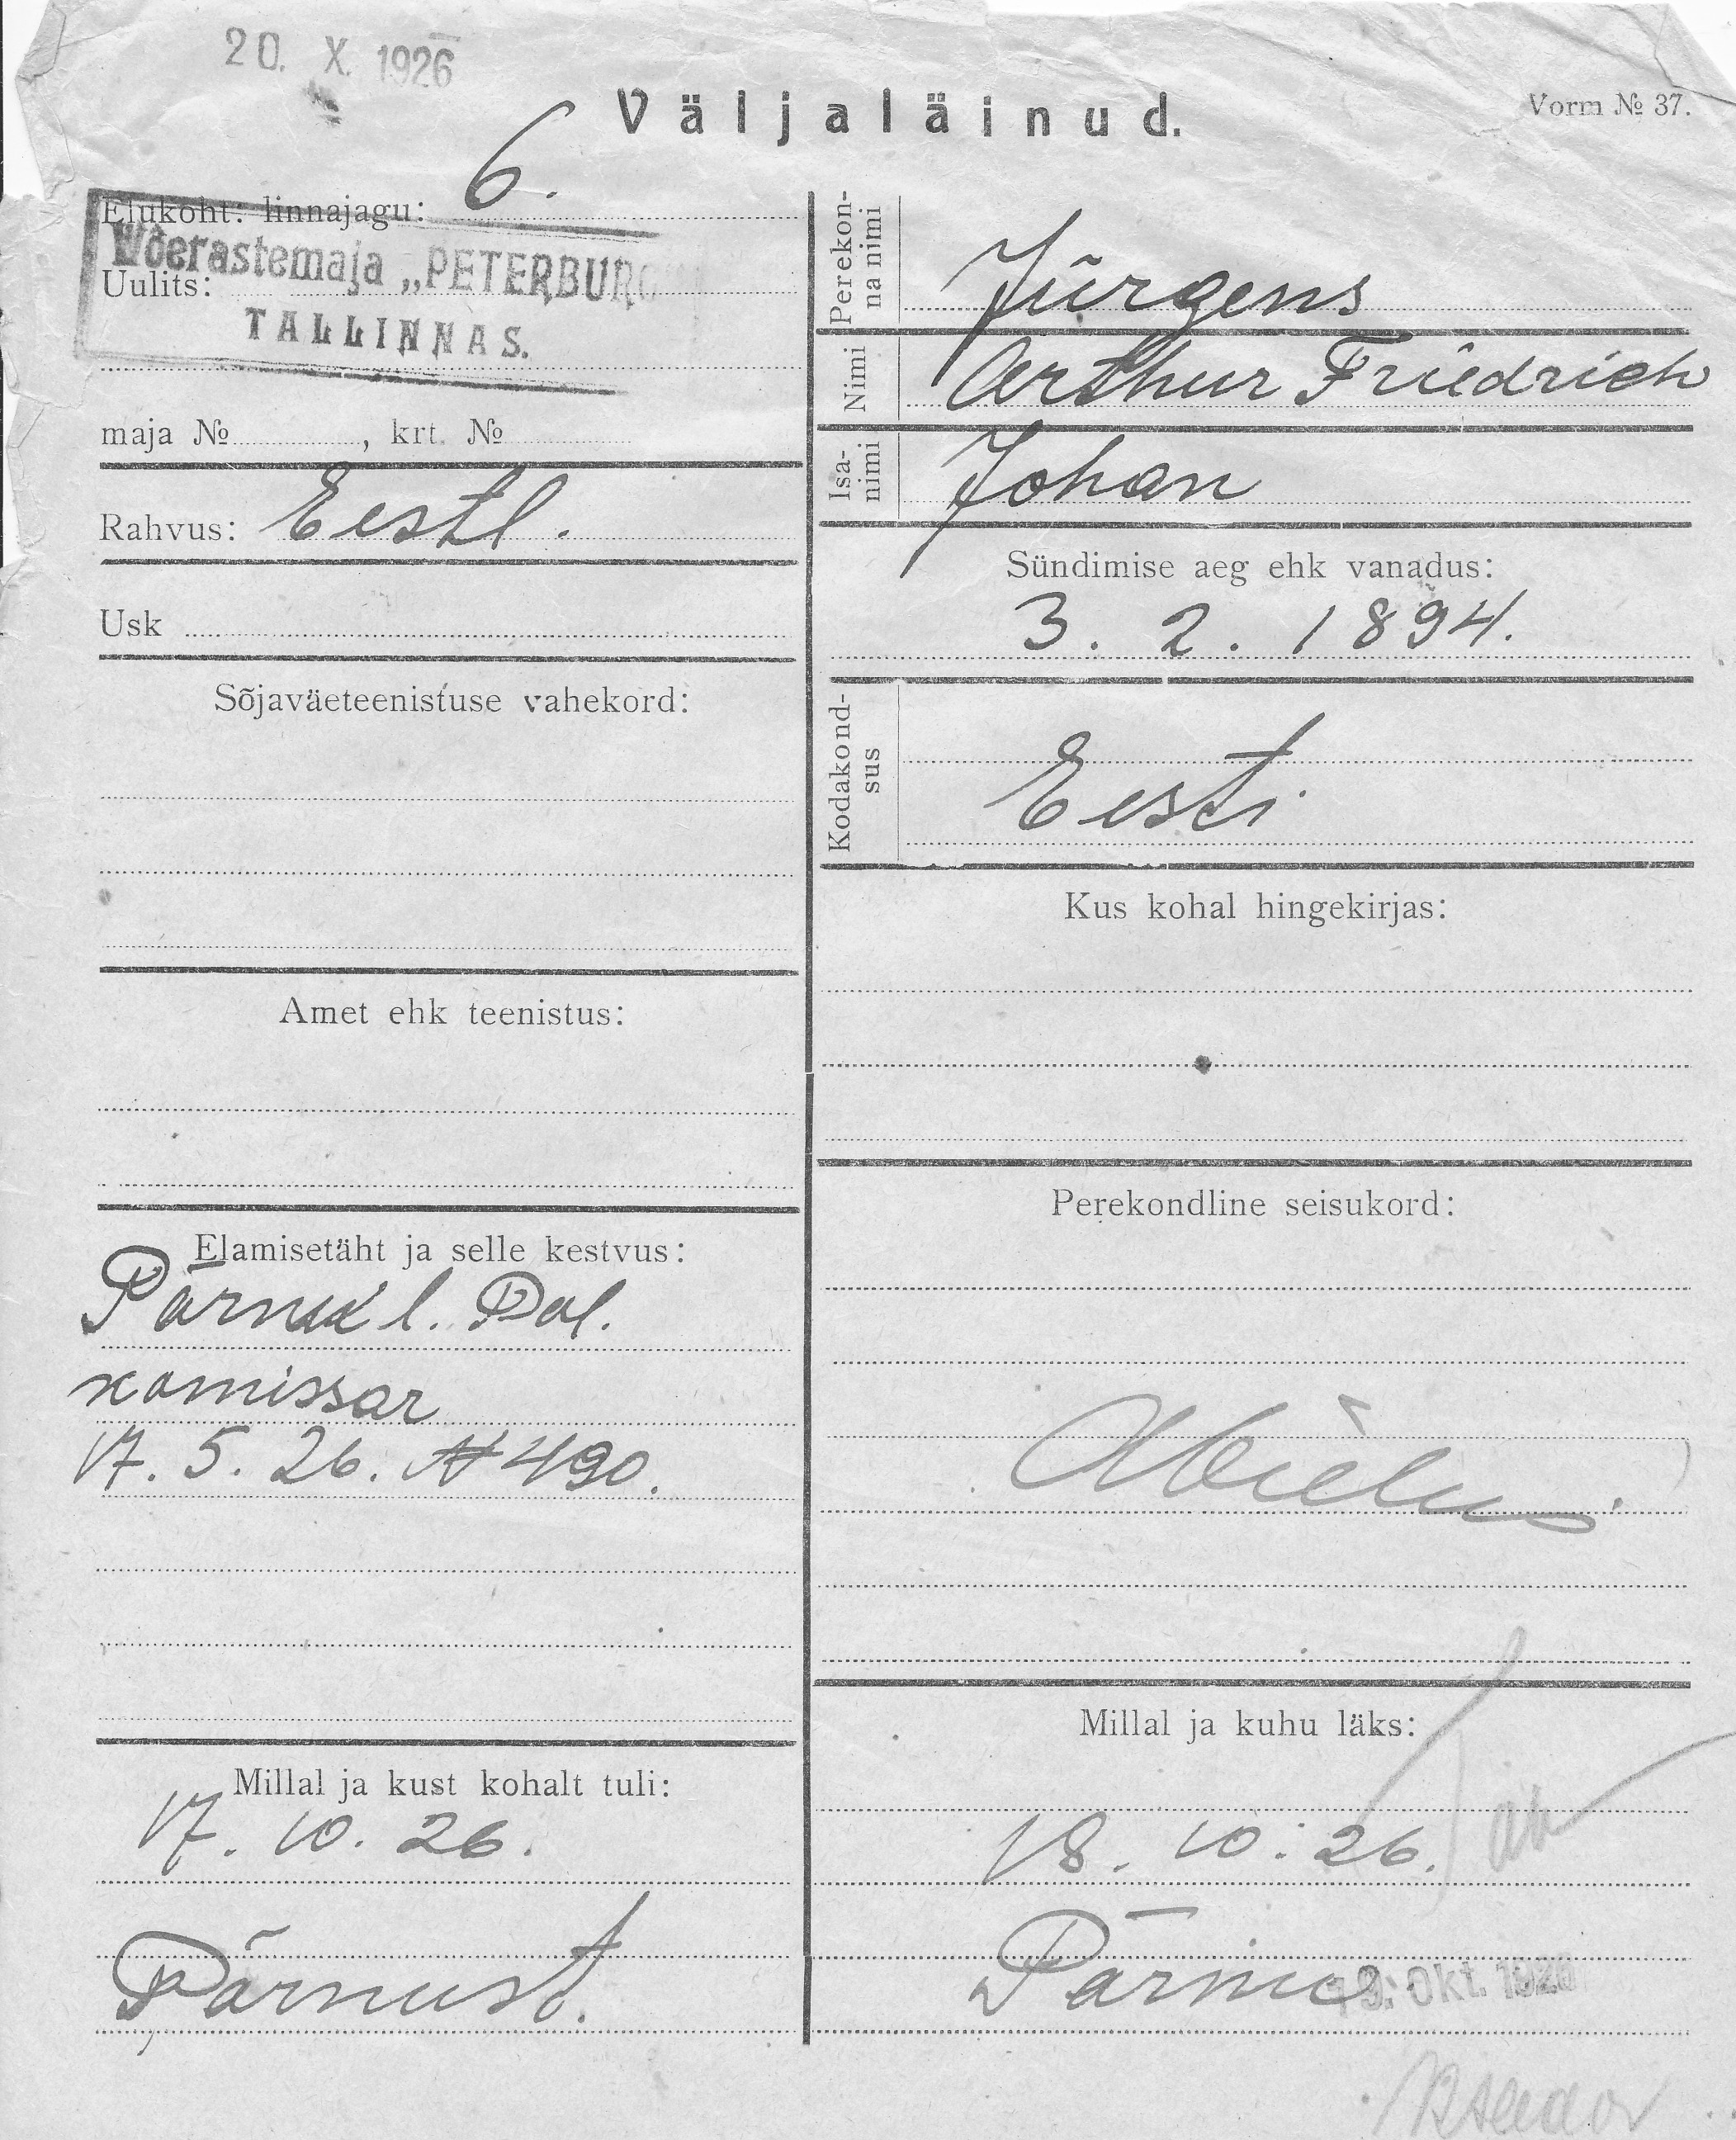 20. X. 1926
Väljaläinud.
Vorm № 37.
Elukoht: linnajagu: 6.
Wõerastemaja „PETERBURG
Uulits:
TALLINNAS.
maja № , krt. №
Rahvus: Eestl.
Usk
Sõjaväeteenistuse vahekord:
Amet ehk teenistus:
Elamisetäht ja selle kestvus:
Pärnu l. Pol.
komissar
17. 5. 26. № 490.
Millal ja kust kohalt tuli:
17. 10. 26.
Pärnust.
Perekon-
na nimi
Jürgens
Nimi
Arthur Friedrich
Isa-
nimi
Johan
Sündimise aeg ehk vanadus:
3. 2. 1894.
Kodakond-
sus
Eesti
Kus kohal hingekirjas:
Perekondline seisukord:
Abielus.
Millal ja kuhu läks:
18. 10. 26.
Pärnu
19. Okt. 1926